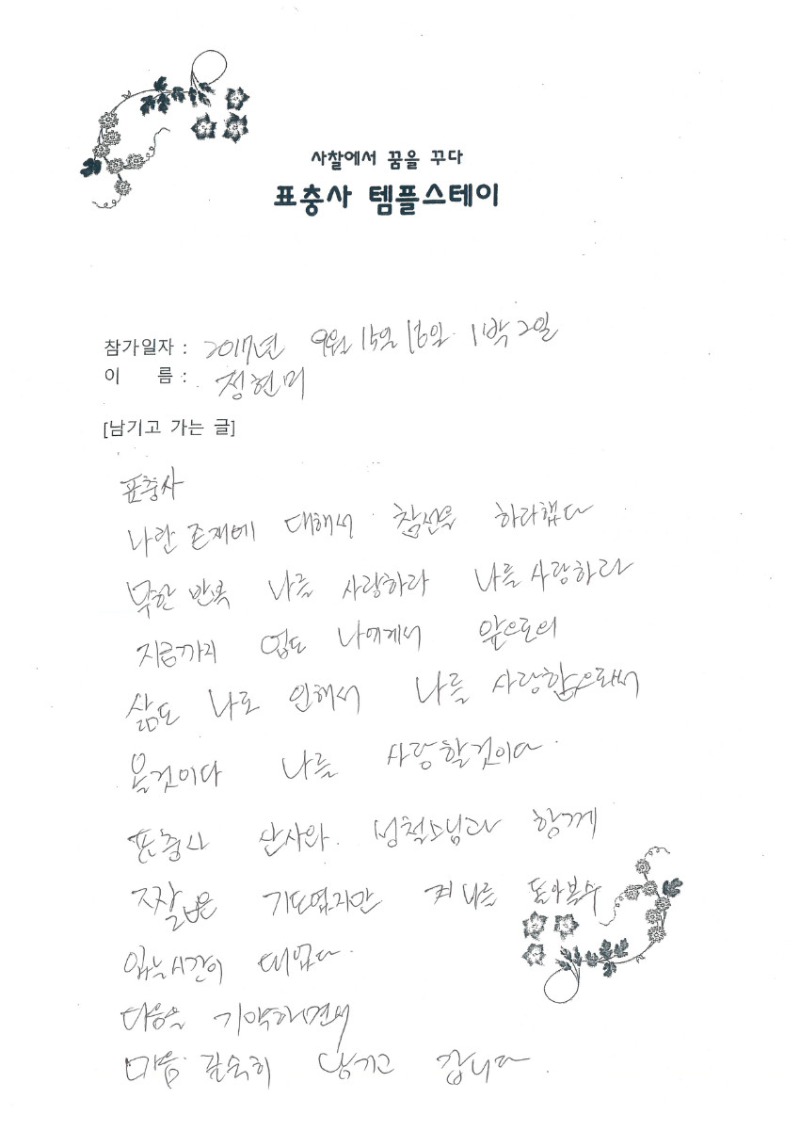 사찰에서 꿈을 꾸다
표충사 템플스테이
참가일자 : 2017년 9월 15일 16일. 1박 2일
이 름 : 정현미
[남기고 가는 글]
표충사
나란 존재에 대해서 참선을 하라했다
무한 반복 나를 사랑하라 나를 사랑하라
지금까지 나에게서 앞으로의
삶도 나로 인해서 나를 사랑함으로써
올것이다 나를 사랑할것이다.
표충사 산사와. 스님과 함께
짧은 기도였지만 저 나를 돌아볼수
있는시간이 되었다.
다음을 기약하면서
마음. 깊숙히 남기고 갑니다.